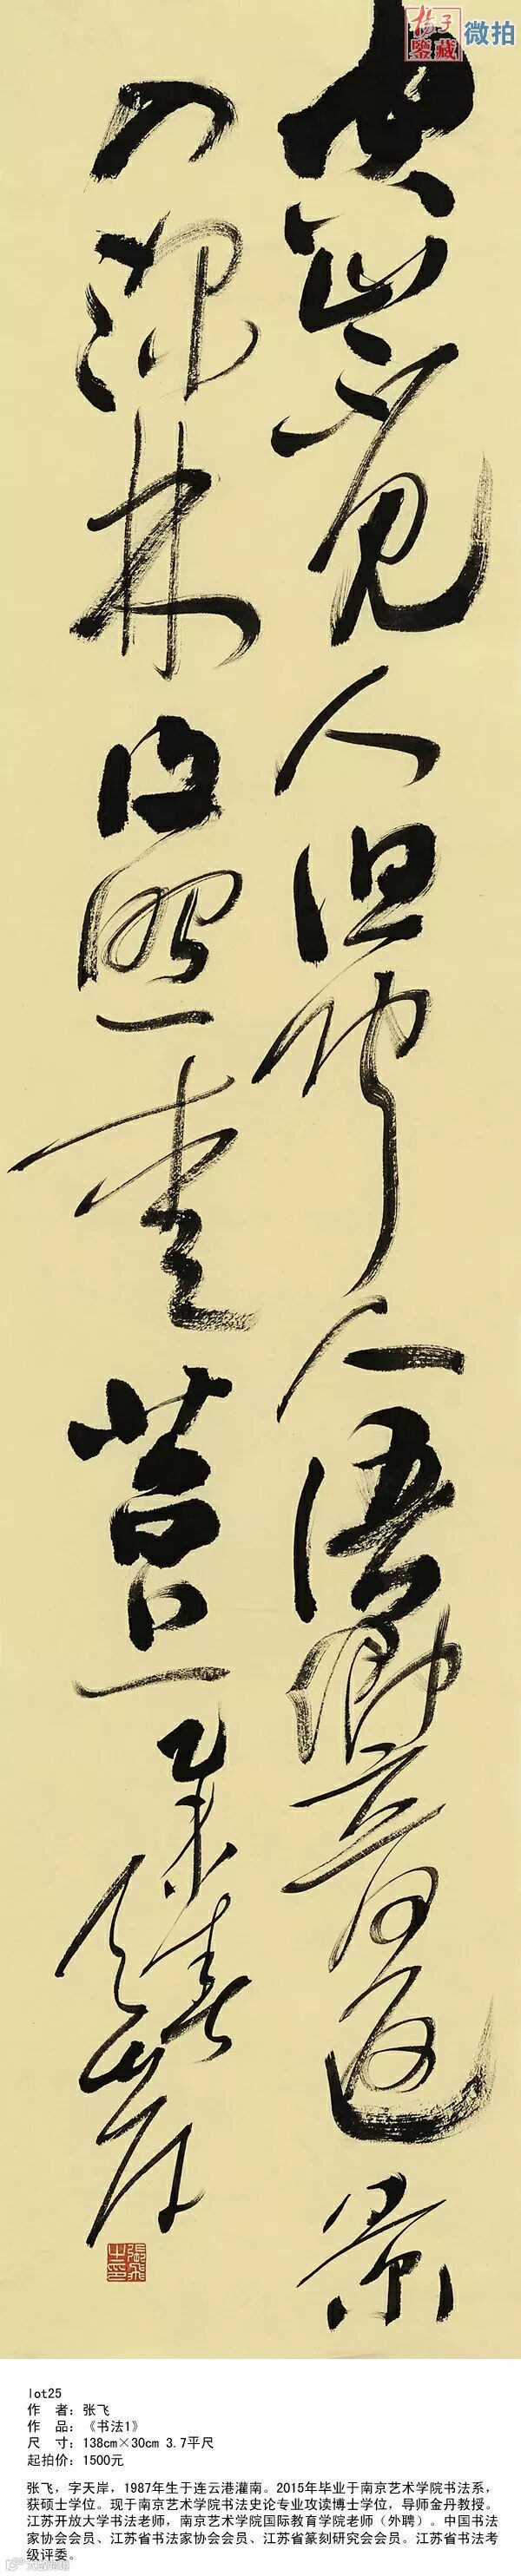 揚子
鑒藏
微拍
空山不見人但聞人語響返景
入深林復照青苔上乙未春天岸
張飛之印
lot25
作　者：张飞
作　品：《书法1》
尺　寸：138cm×30cm 3.7平尺
起拍价：1500元
张飞，字天岸，1987年生于连云港灌南。2015年毕业于南京艺术学院书法系，
获硕士学位。现于南京艺术学院书法史论专业攻读博士学位，导师金丹教授。
江苏开放大学书法老师，南京艺术学院国际教育学院老师（外聘）。中国书法
家协会会员、江苏省书法家协会会员、江苏省篆刻研究会会员。江苏省书法考
级评委。